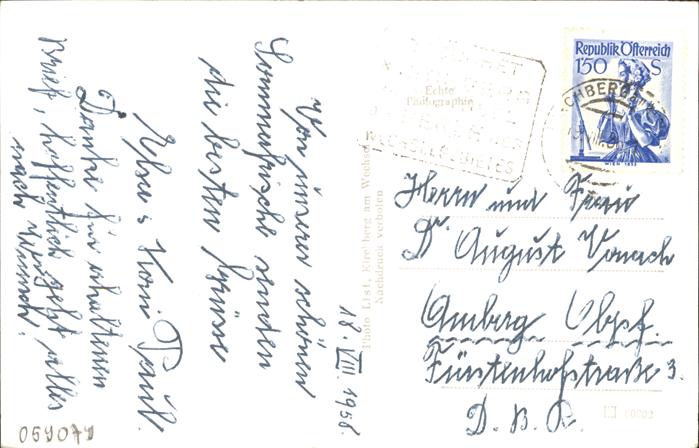 Republik Österreich
1'50 S
WIEN 1853
CHBERG
Echte
Photographie
Photo List, Kirchberg am Wechsel
Nachdruck verboten
18. VIII. 1958.
Von unserer schönen
Sommerfrische senden
die besten Grüsse
Elsa & Toni Paul.
Danke für erhaltenen
Brief, hoffentlich geht alles
nach Wunsch.
Herrn und Frau
Dr August Vonach
Amberg Obpf.
Fürstenhofstraße 3.
D. B. R.